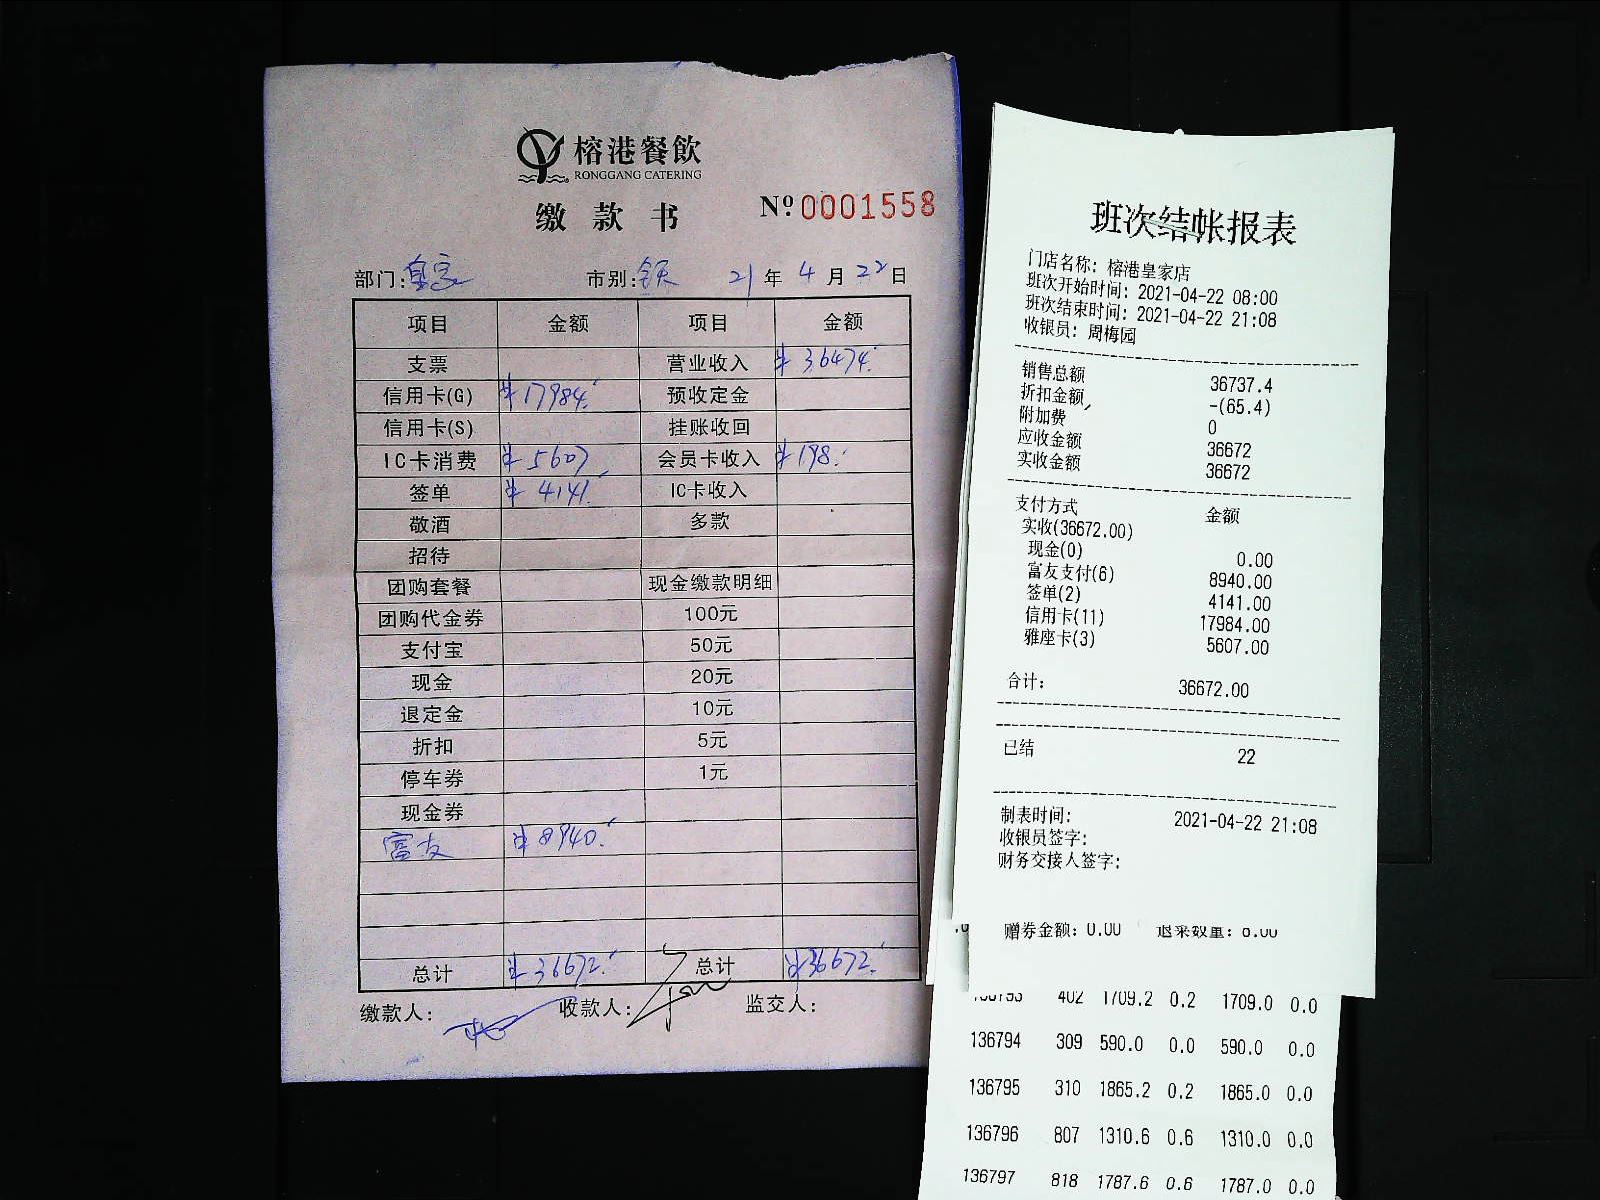 榕港餐飲
RONGGANG CATERING
缴款书
Nº 0001558
部门:皇家 市别:全天 21年4月22日
项目 金额 项目 金额
支票 营业收入 ¥36474.
信用卡(G) ¥17984. 预收定金
信用卡(S) 挂账收回
IC卡消费 ¥5607 会员卡收入 ¥198.
签单 ¥4141. IC卡收入
敬酒 多款
招待
团购套餐 现金缴款明细
团购代金券 100元
支付宝 50元
现金 20元
退定金 10元
折扣 5元
停车券 1元
现金券
富友 ¥8940.
总计 ¥36672. 总计 ¥36672.
缴款人: 收款人: 监交人:
班次结帐报表
门店名称: 榕港皇家店
班次开始时间: 2021-04-22 08:00
班次结束时间: 2021-04-22 21:08
收银员: 周梅园
销售总额 36737.4
折扣金额 -(65.4)
附加费 0
应收金额 36672
实收金额 36672
支付方式 金额
实收(36672.00)
现金(0) 0.00
富友支付(6) 8940.00
签单(2) 4141.00
信用卡(11) 17984.00
雅座卡(3) 5607.00
合计: 36672.00
已结 22
制表时间: 2021-04-22 21:08
收银员签字:
财务交接人签字:
赠券金额: 0.00 退菜数量: 0.00
136793 402 1709.2 0.2 1709.0 0.0
136794 309 590.0 0.0 590.0 0.0
136795 310 1865.2 0.2 1865.0 0.0
136796 807 1310.6 0.6 1310.0 0.0
136797 818 1787.6 0.6 1787.0 0.0